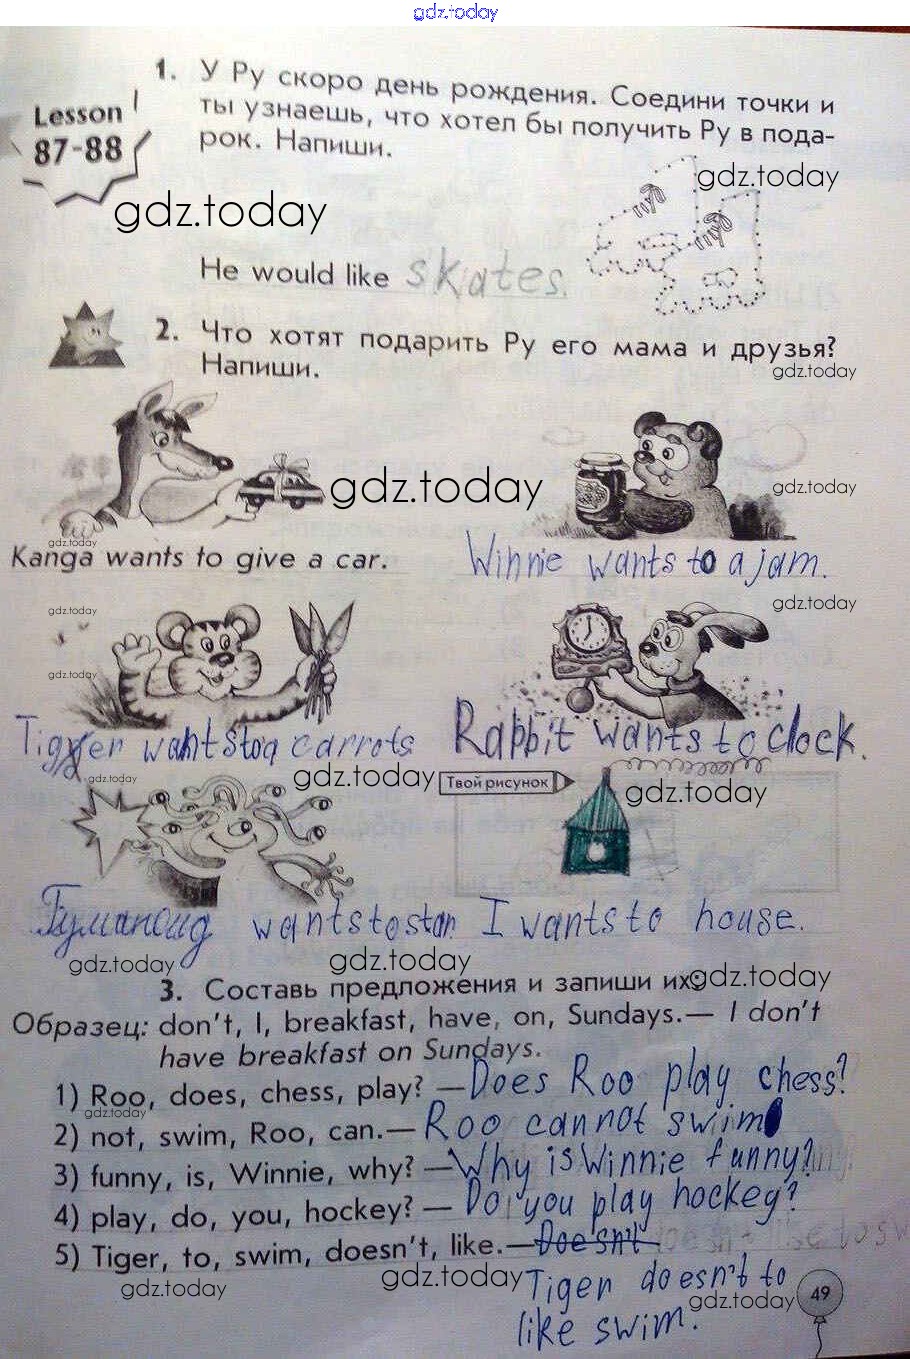 gdz.today
1. У Ру скоро день рождения. Соедини точки и
Lesson
87-88
ты узнаешь, что хотел бы получить Ру в пода-
рок. Напиши.
gdz.today
gdz.today
He would like skates.
2. Что хотят подарить Ру его мама и друзья?
Напиши.
gdz.today
gdz.today
gdz.today
gdz.today
Kanga wants to give a car.
Winnie wants to a jam.
gdz.today
gdz.today
gdz.today
Tigger wants to a carrots
Rabbit wants to clock.
gdz.today
gdz.today
Твой рисунок
gdz.today
Гуманоид wants to star.
I wants to house.
gdz.today
gdz.today
gdz.today
3. Составь предложения и запиши их:
Образец: don't, I, breakfast, have, on, Sundays.— I don't
have breakfast on Sundays.
1) Roo, does, chess, play? — Does Roo play chess?
gdz.today
2) not, swim, Roo, can.— Roo cannot swim
3) funny, is, Winnie, why? — Why is Winnie funny?
4) play, do, you, hockey? — Do you play hockey?
5) Tiger, to, swim, doesn't, like.— Doesn't
Tiger doesn't to
like swim.
gdz.today
gdz.today
gdz.today
49